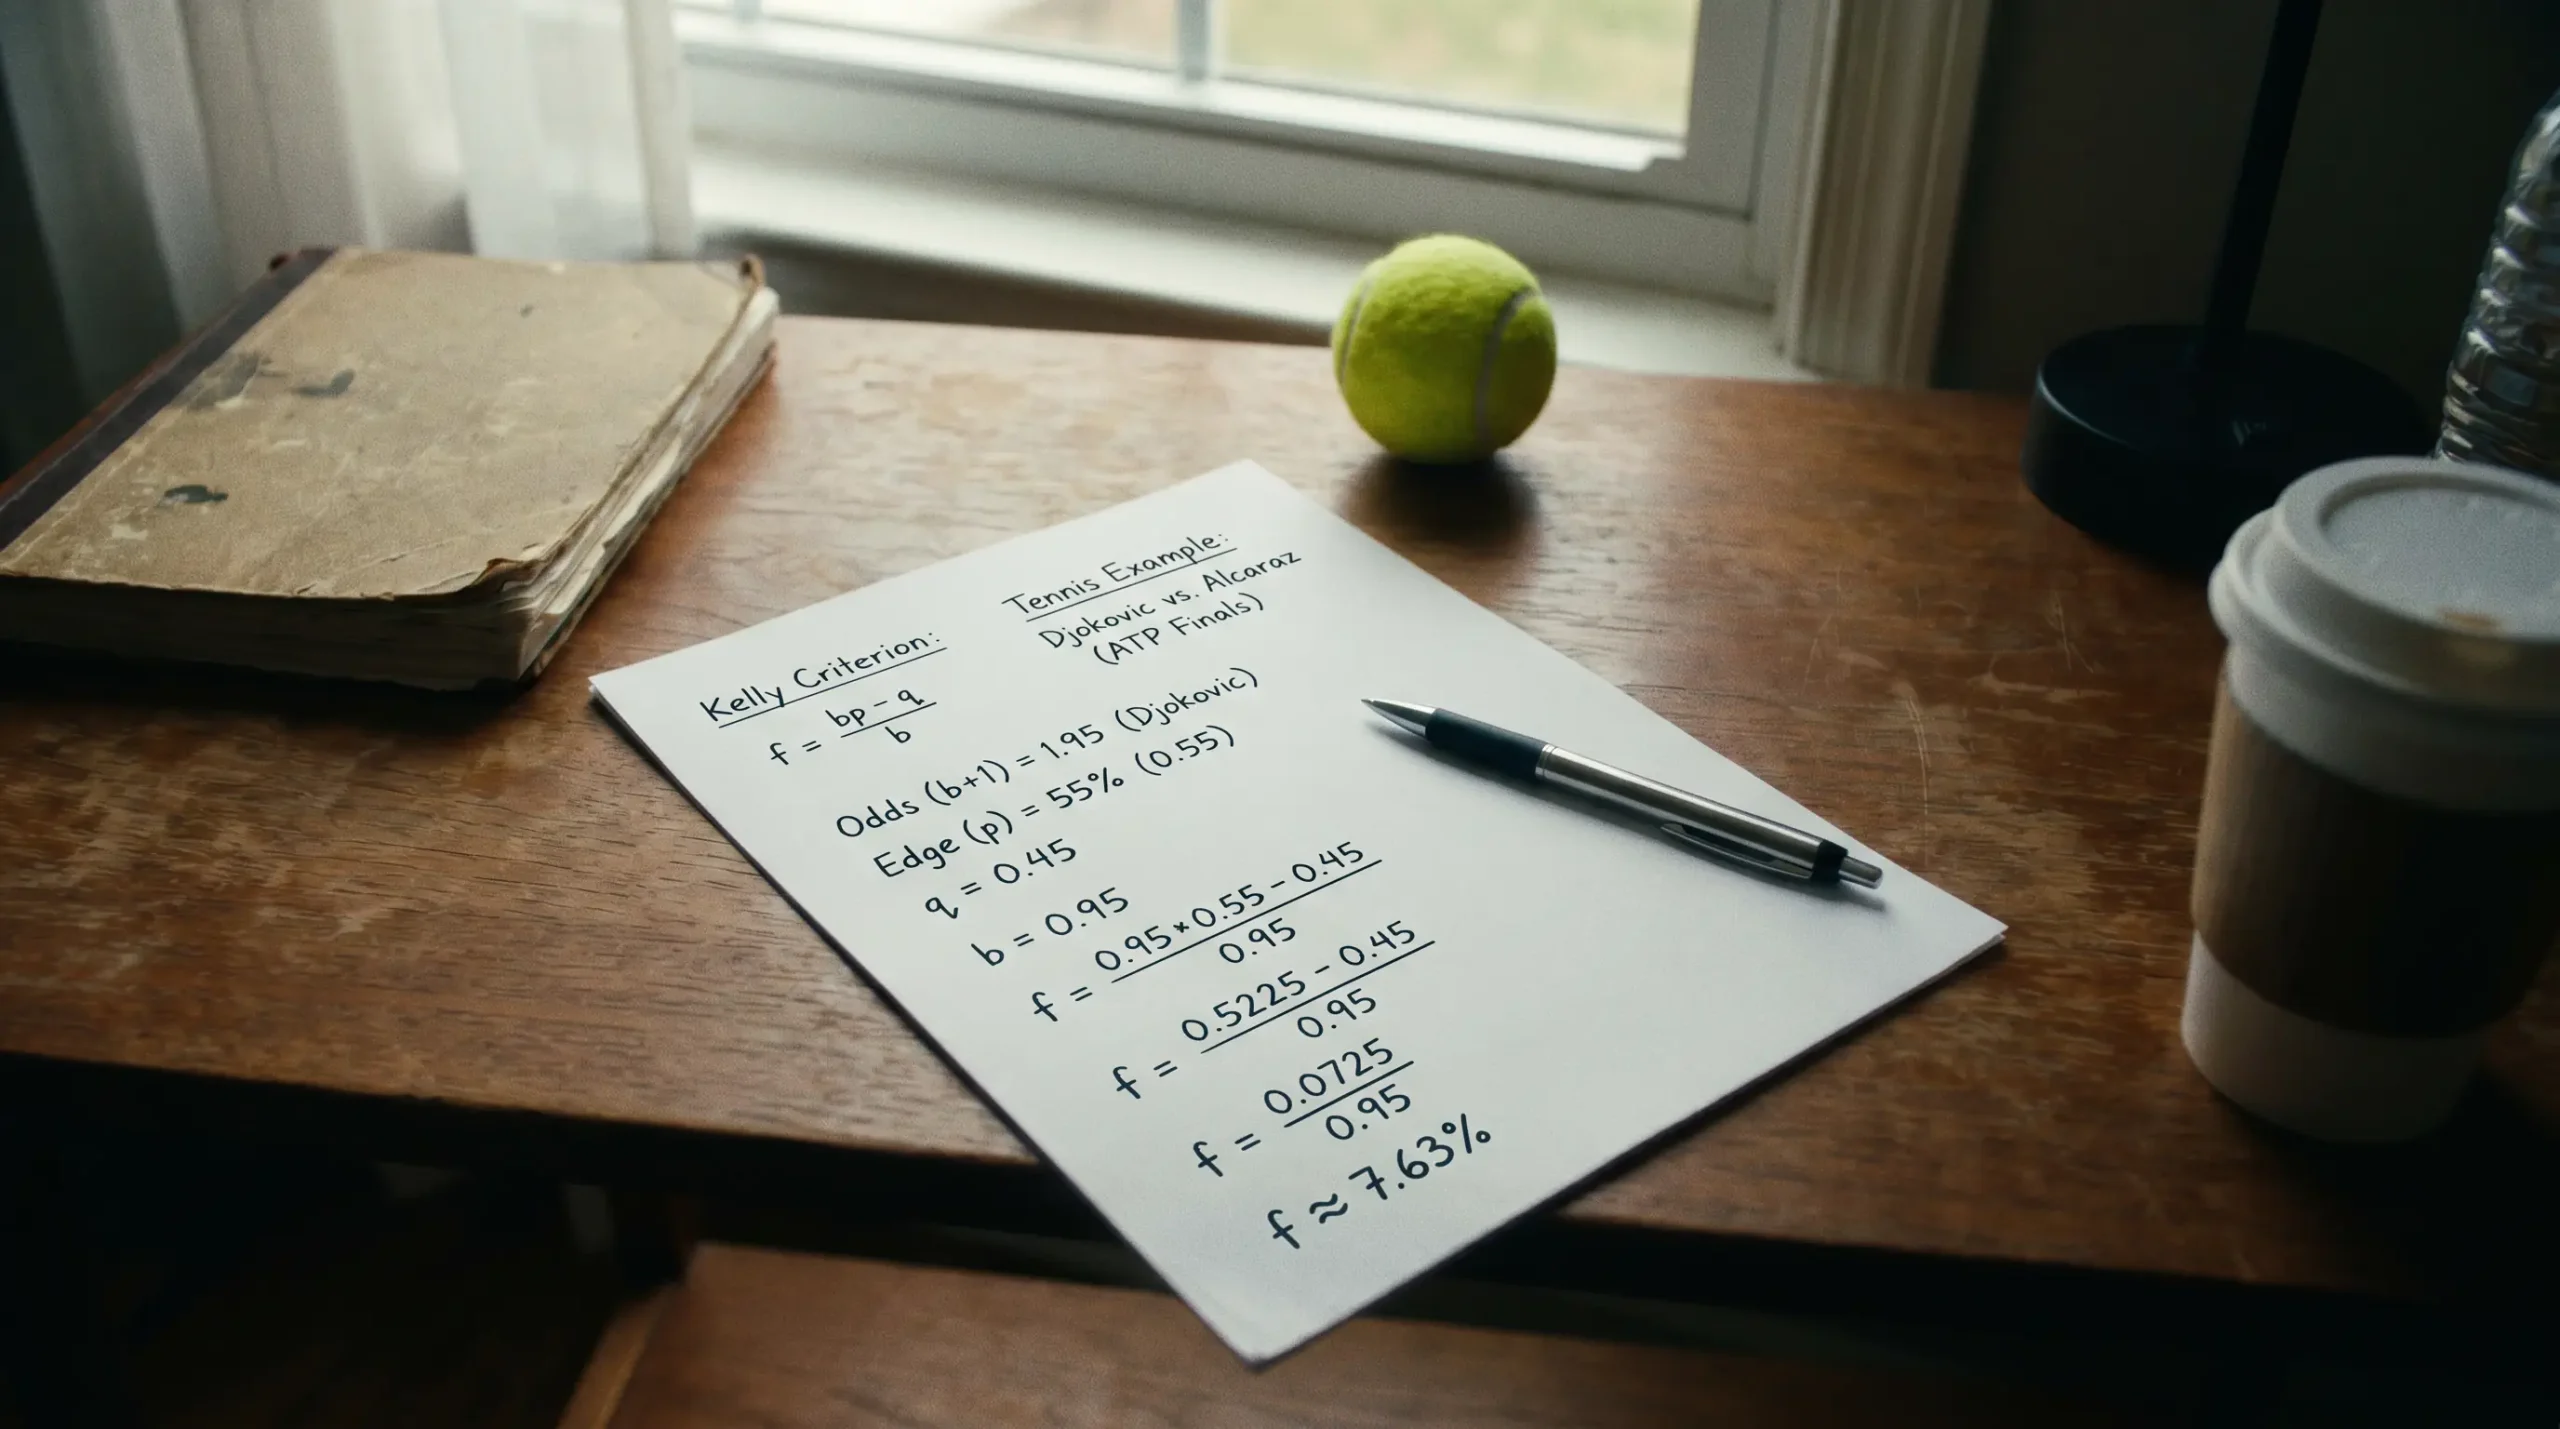 Kelly Criterion:
f = (bp - q) / b
Tennis Example:
Djokovic vs. Alcaraz
(ATP Finals)
Odds (b+1) = 1.95 (Djokovic)
Edge (p) = 55% (0.55)
q = 0.45
b = 0.95
f = (0.95 * 0.55 - 0.45) / 0.95
f = (0.5225 - 0.45) / 0.95
f = 0.0725 / 0.95
f ≈ 7.63%